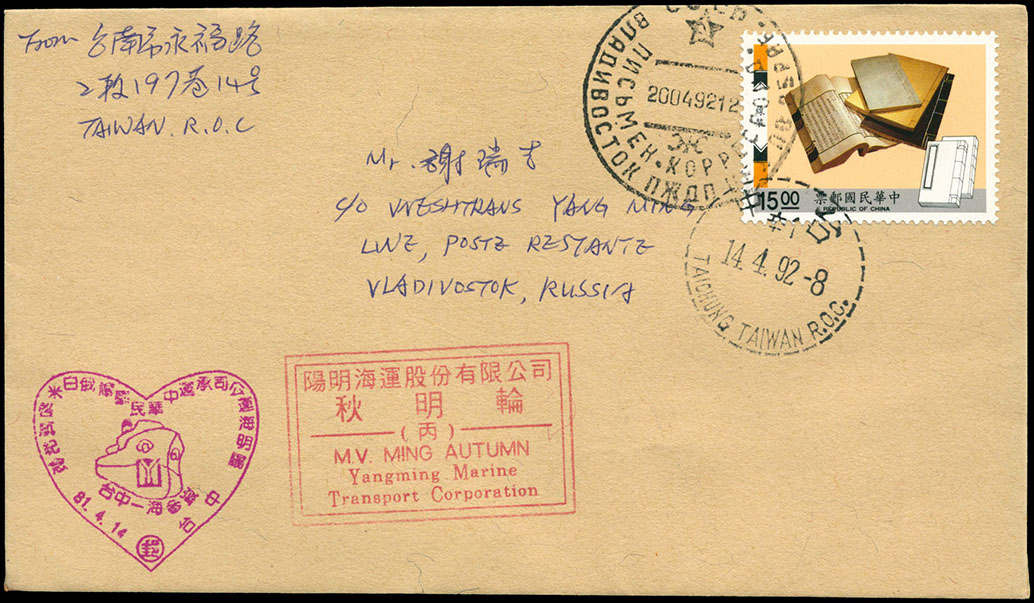 From 台南市永福路
2段197巷14号
TAIWAN. R.O.C
Mr. 謝瑞吉
c/o VNESHTRANS YANG MING
LINE, POSTE RESTANTE
VLADIVOSTOK, RUSSIA
СССР
ВЛАДИВОСТОК ПЖДП
ПИСЬМЕН. КОРР
20049212
ЭЖ
15.00
中華民國郵票
REPUBLIC OF CHINA
台中
#1
14.4.92-8
TAICHUNG TAIWAN R.O.C.
陽明海運股份有限公司
秋明輪
(丙)
M.V. MING AUTUMN
Yangming Marine
Transport Corporation
陽明海運公司承運中華民國
贈俄白米
台中一海參崴
台中
81.4.14
郵